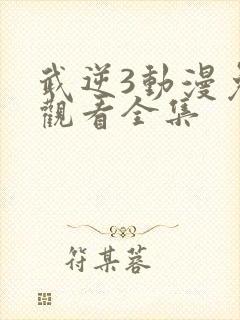 武逆3動漫免
觀看全集
符某蓉